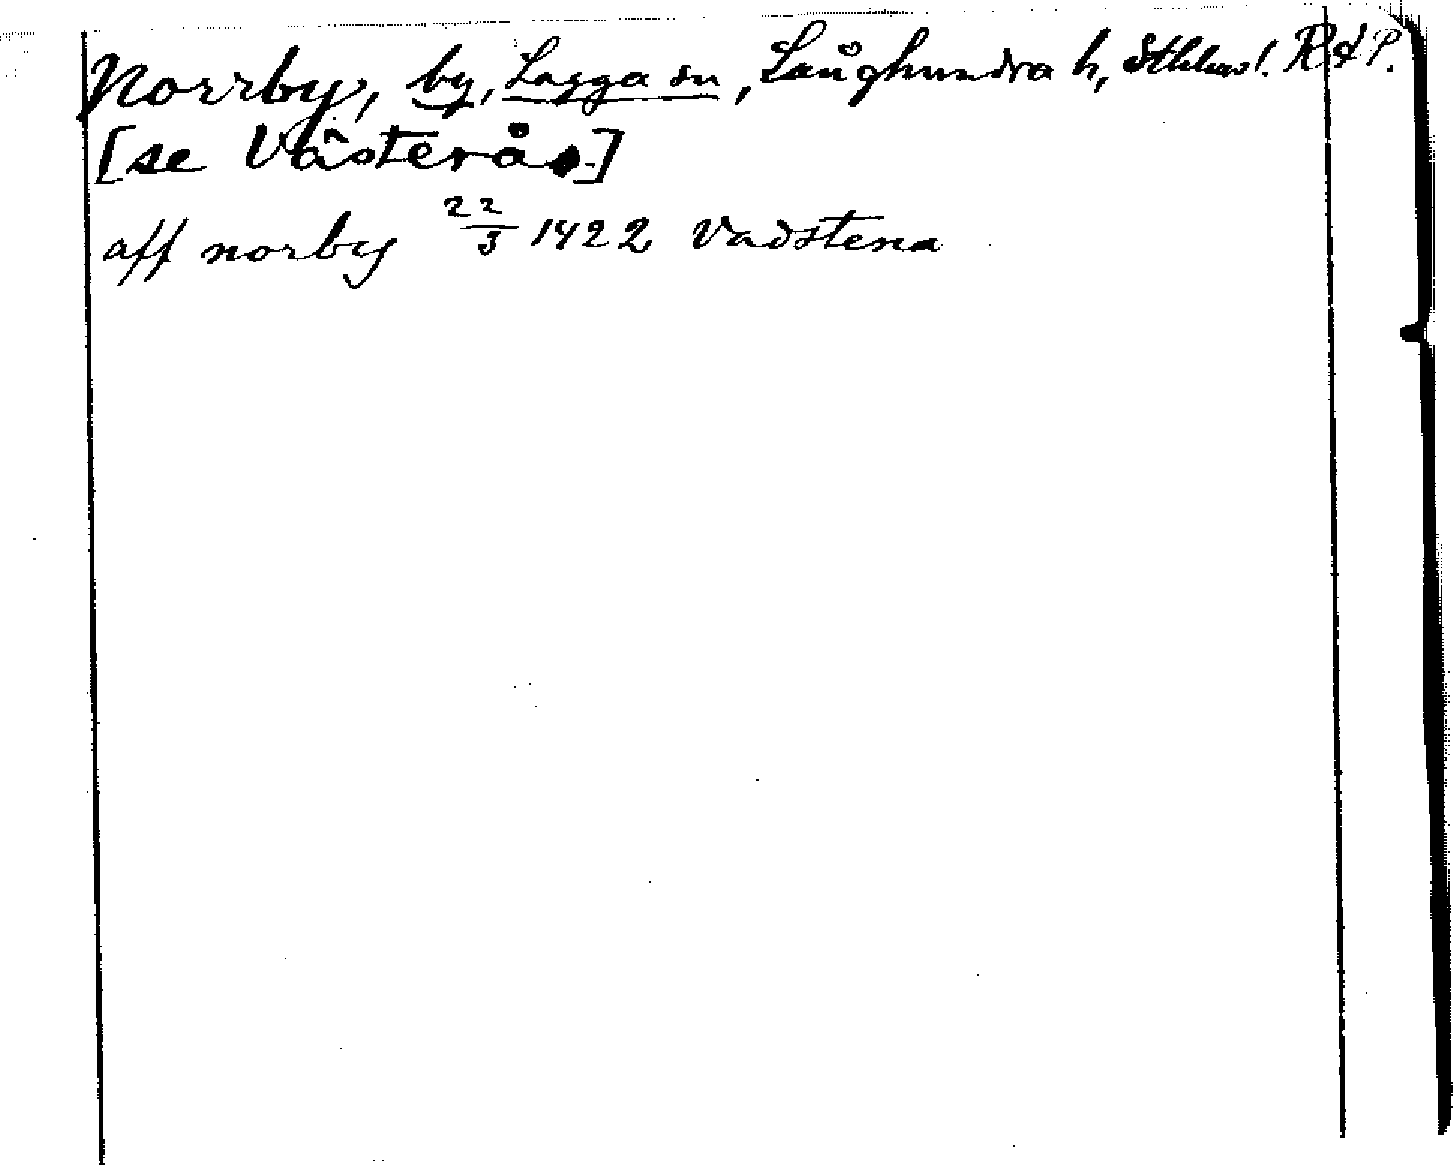 Norrby, by, Lagga sn, Långhundra h, Sthlms l. RAP.
[se Västerås]
aff norby 22/3 1422 Vadstena